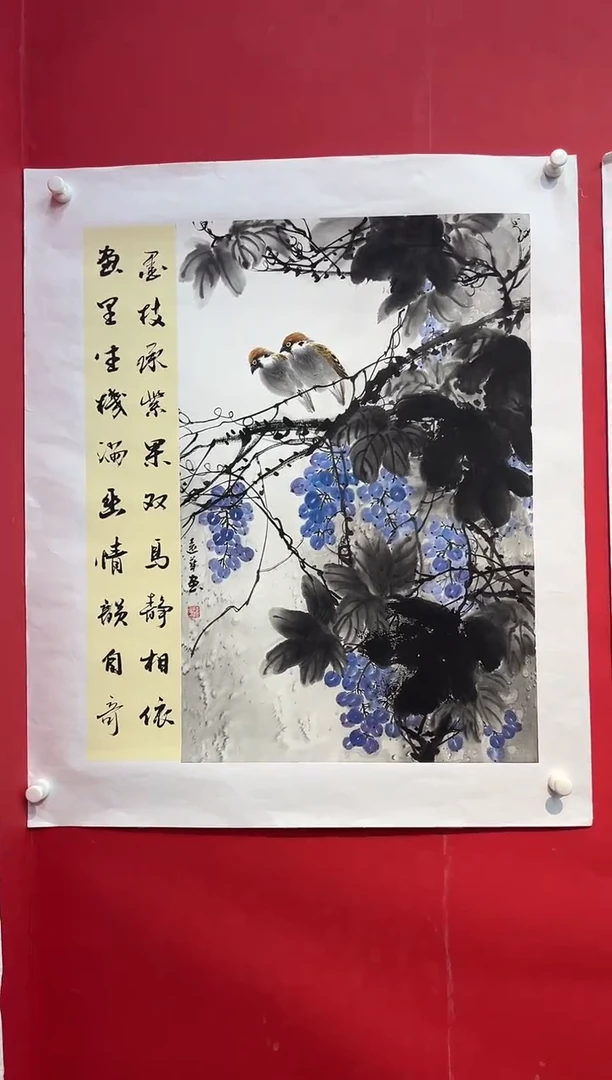 墨枝承紫果双鸟静相依
画里生机满幽情韵自奇
远华画